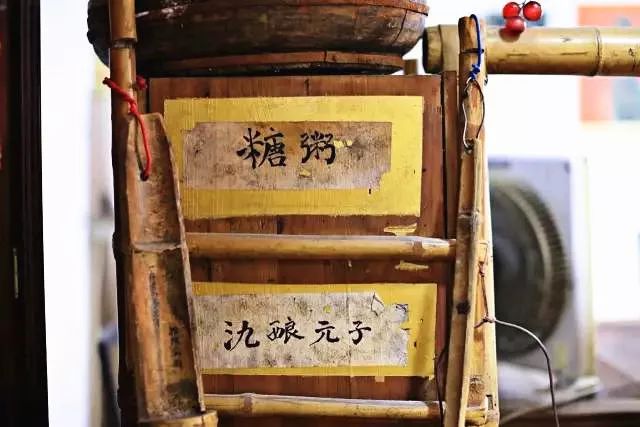 糖粥
氿酿元子